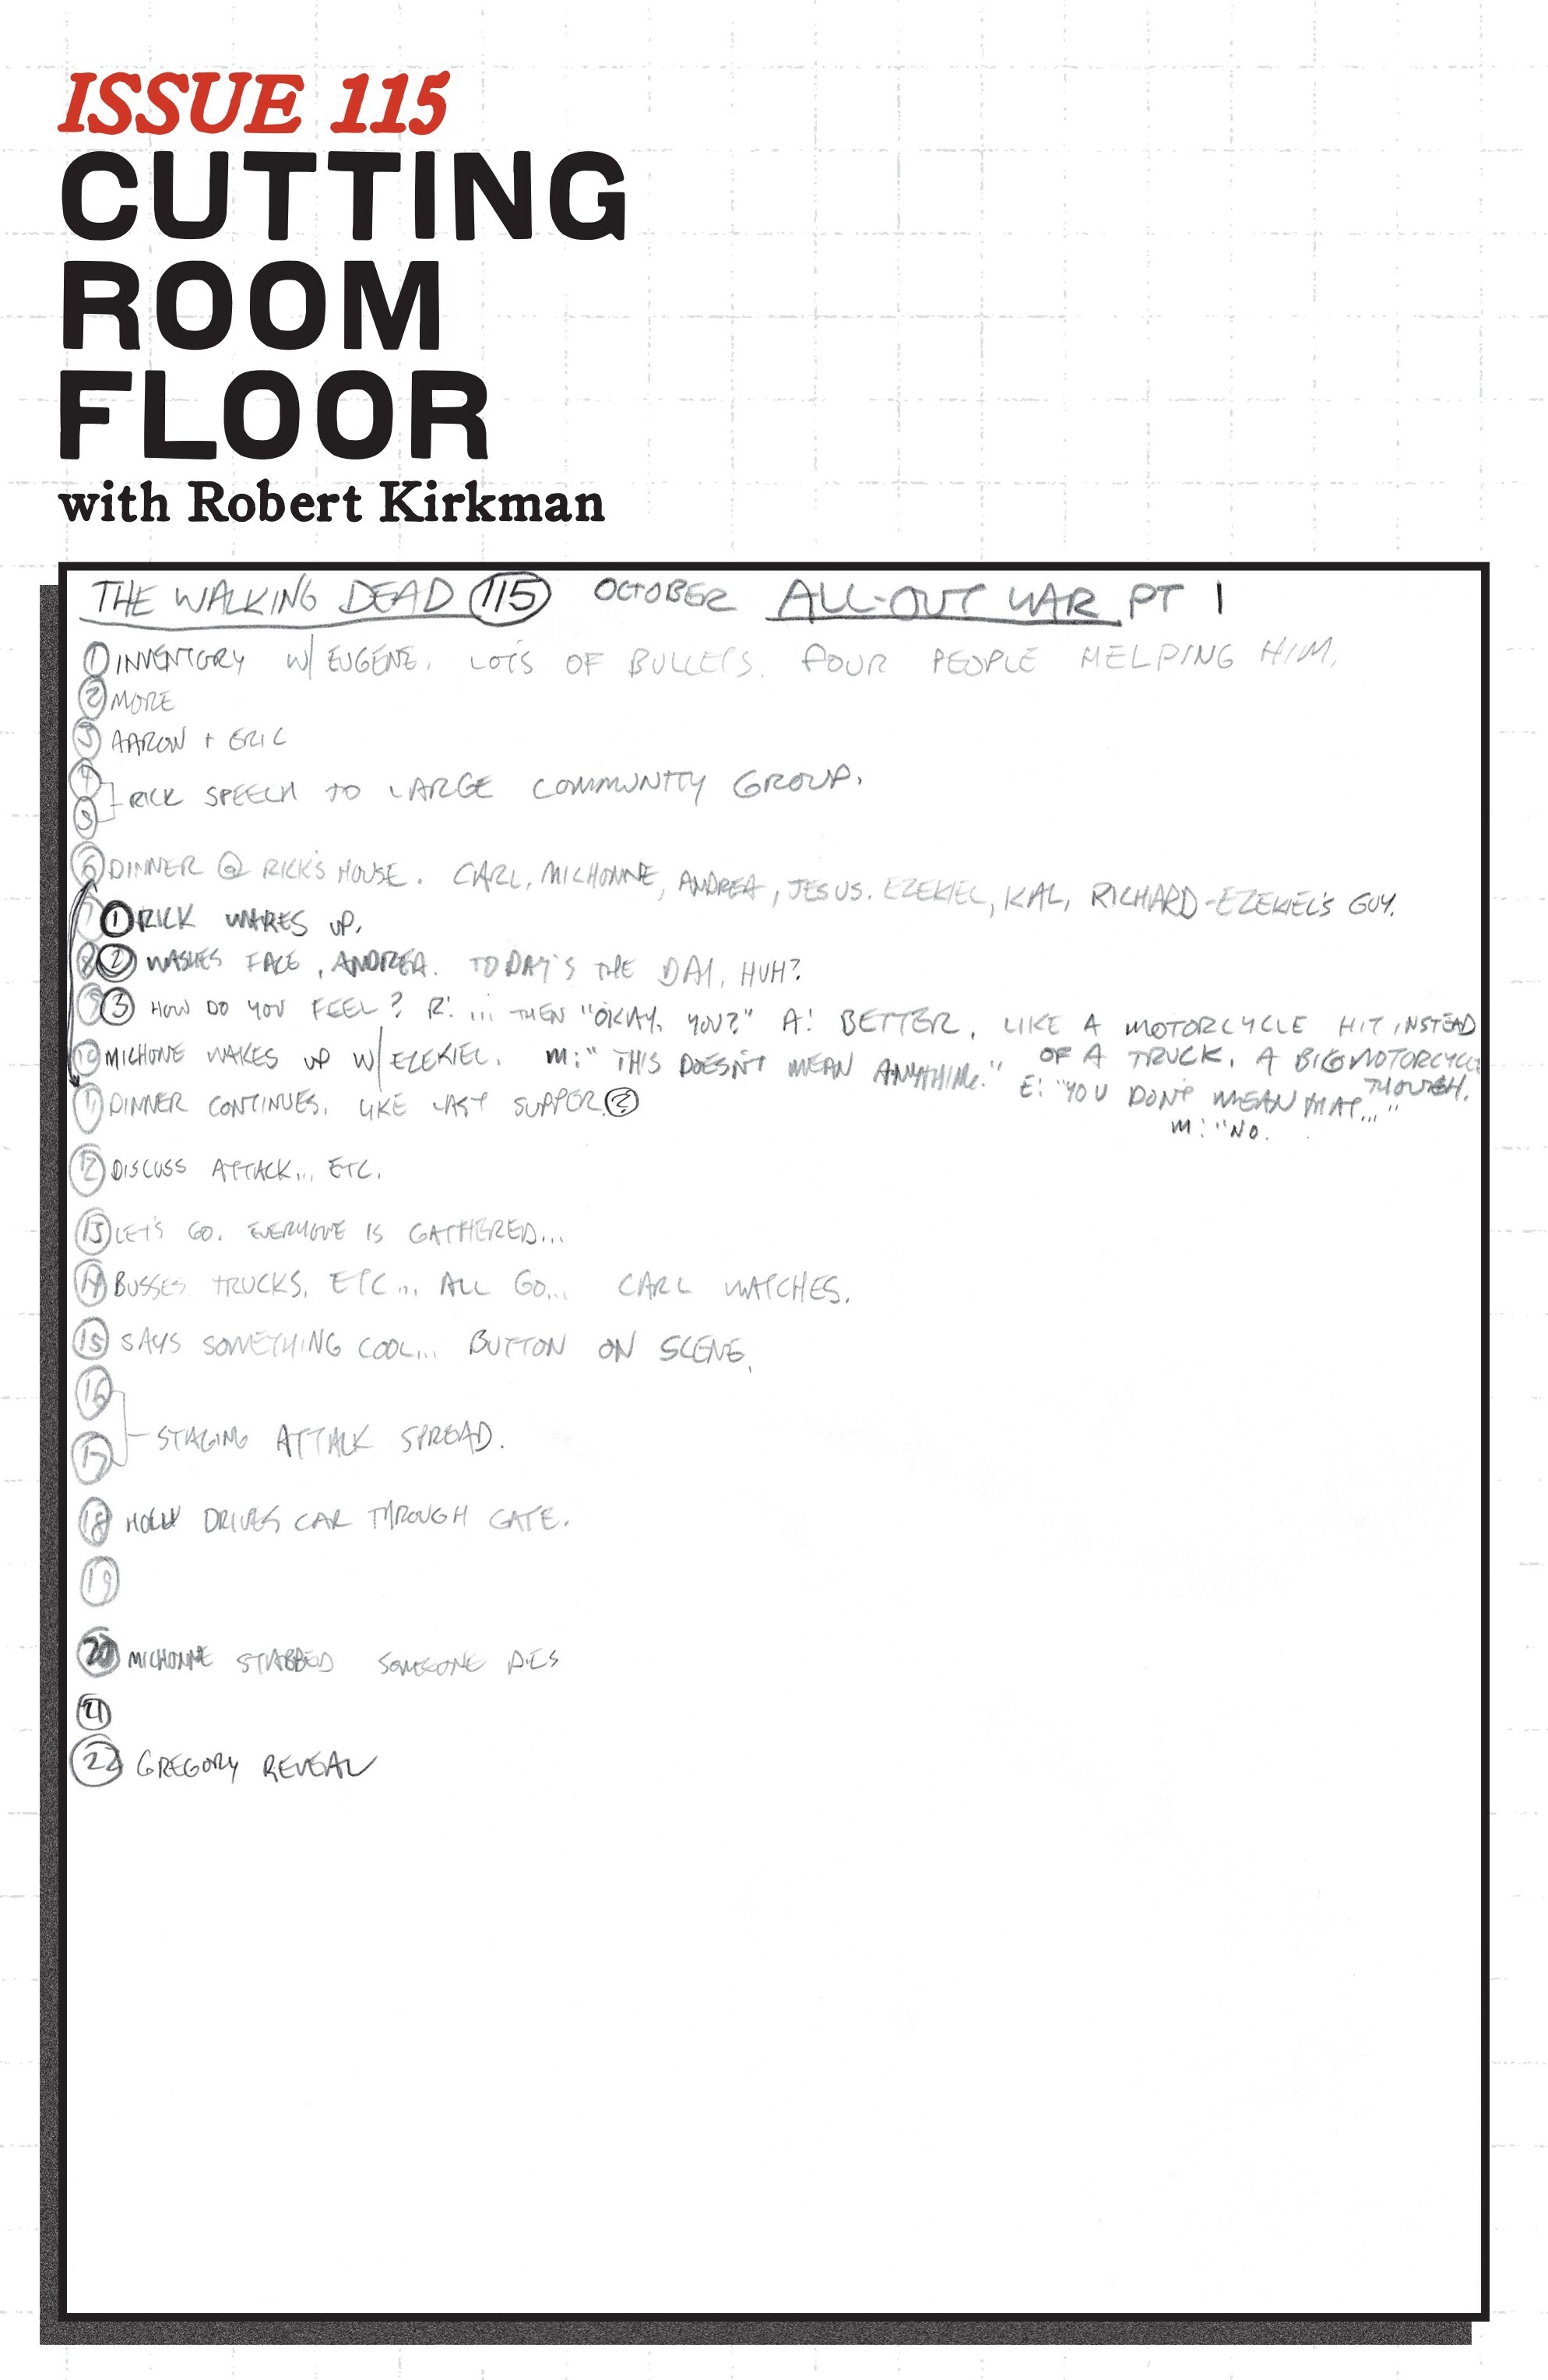 ISSUE 115
CUTTING
ROOM
FLOOR
with Robert Kirkman
THE WALKING DEAD 115 OCTOBER ALL-OUT WAR PT 1
1 INVENTORY W/ EUGENE. LOTS OF BULLETS. FOUR PEOPLE HELPING HIM.
2 MORE
3 AARON + ERIC
4
5 RICK SPEECH TO LARGE COMMUNITY GROUP.
6 DINNER @ RICK'S HOUSE. CARL, MICHONNE, ANDREA, JESUS. EZEKIEL, KAL, RICHARD-EZEKIEL'S GUY.
7 1 RICK WAKES UP.
8 2 WASHES FACE, ANDREA. TODAY'S THE DAY, HUH?
9 3 HOW DO YOU FEEL? R: ... THEN "OKAY. YOU?" A: BETTER. LIKE A MOTORCYCLE HIT INSTEAD
OF A TRUCK. A BIG MOTORCYCLE
THOUGH.
10 MICHONE WAKES UP W/ EZEKIEL. M: "THIS DOESN'T MEAN ANYTHING."
E: "YOU DON'T MEAN THAT..."
M: "NO.
11 DINNER CONTINUES. LIKE LAST SUPPER. 2
12 DISCUSS ATTACK... ETC.
13 LET'S GO. EVERYONE IS GATHERED...
14 BUSSES TRUCKS, ETC... ALL GO... CARL WATCHES.
15 SAYS SOMETHING COOL... BUTTON ON SCENE.
16
17 STAGING ATTACK SPREAD.
18 HOLLY DRIVES CAR THROUGH GATE.
19
20 MICHONNE STABBED SOMEONE DIES
21
22 GREGORY REVEAL